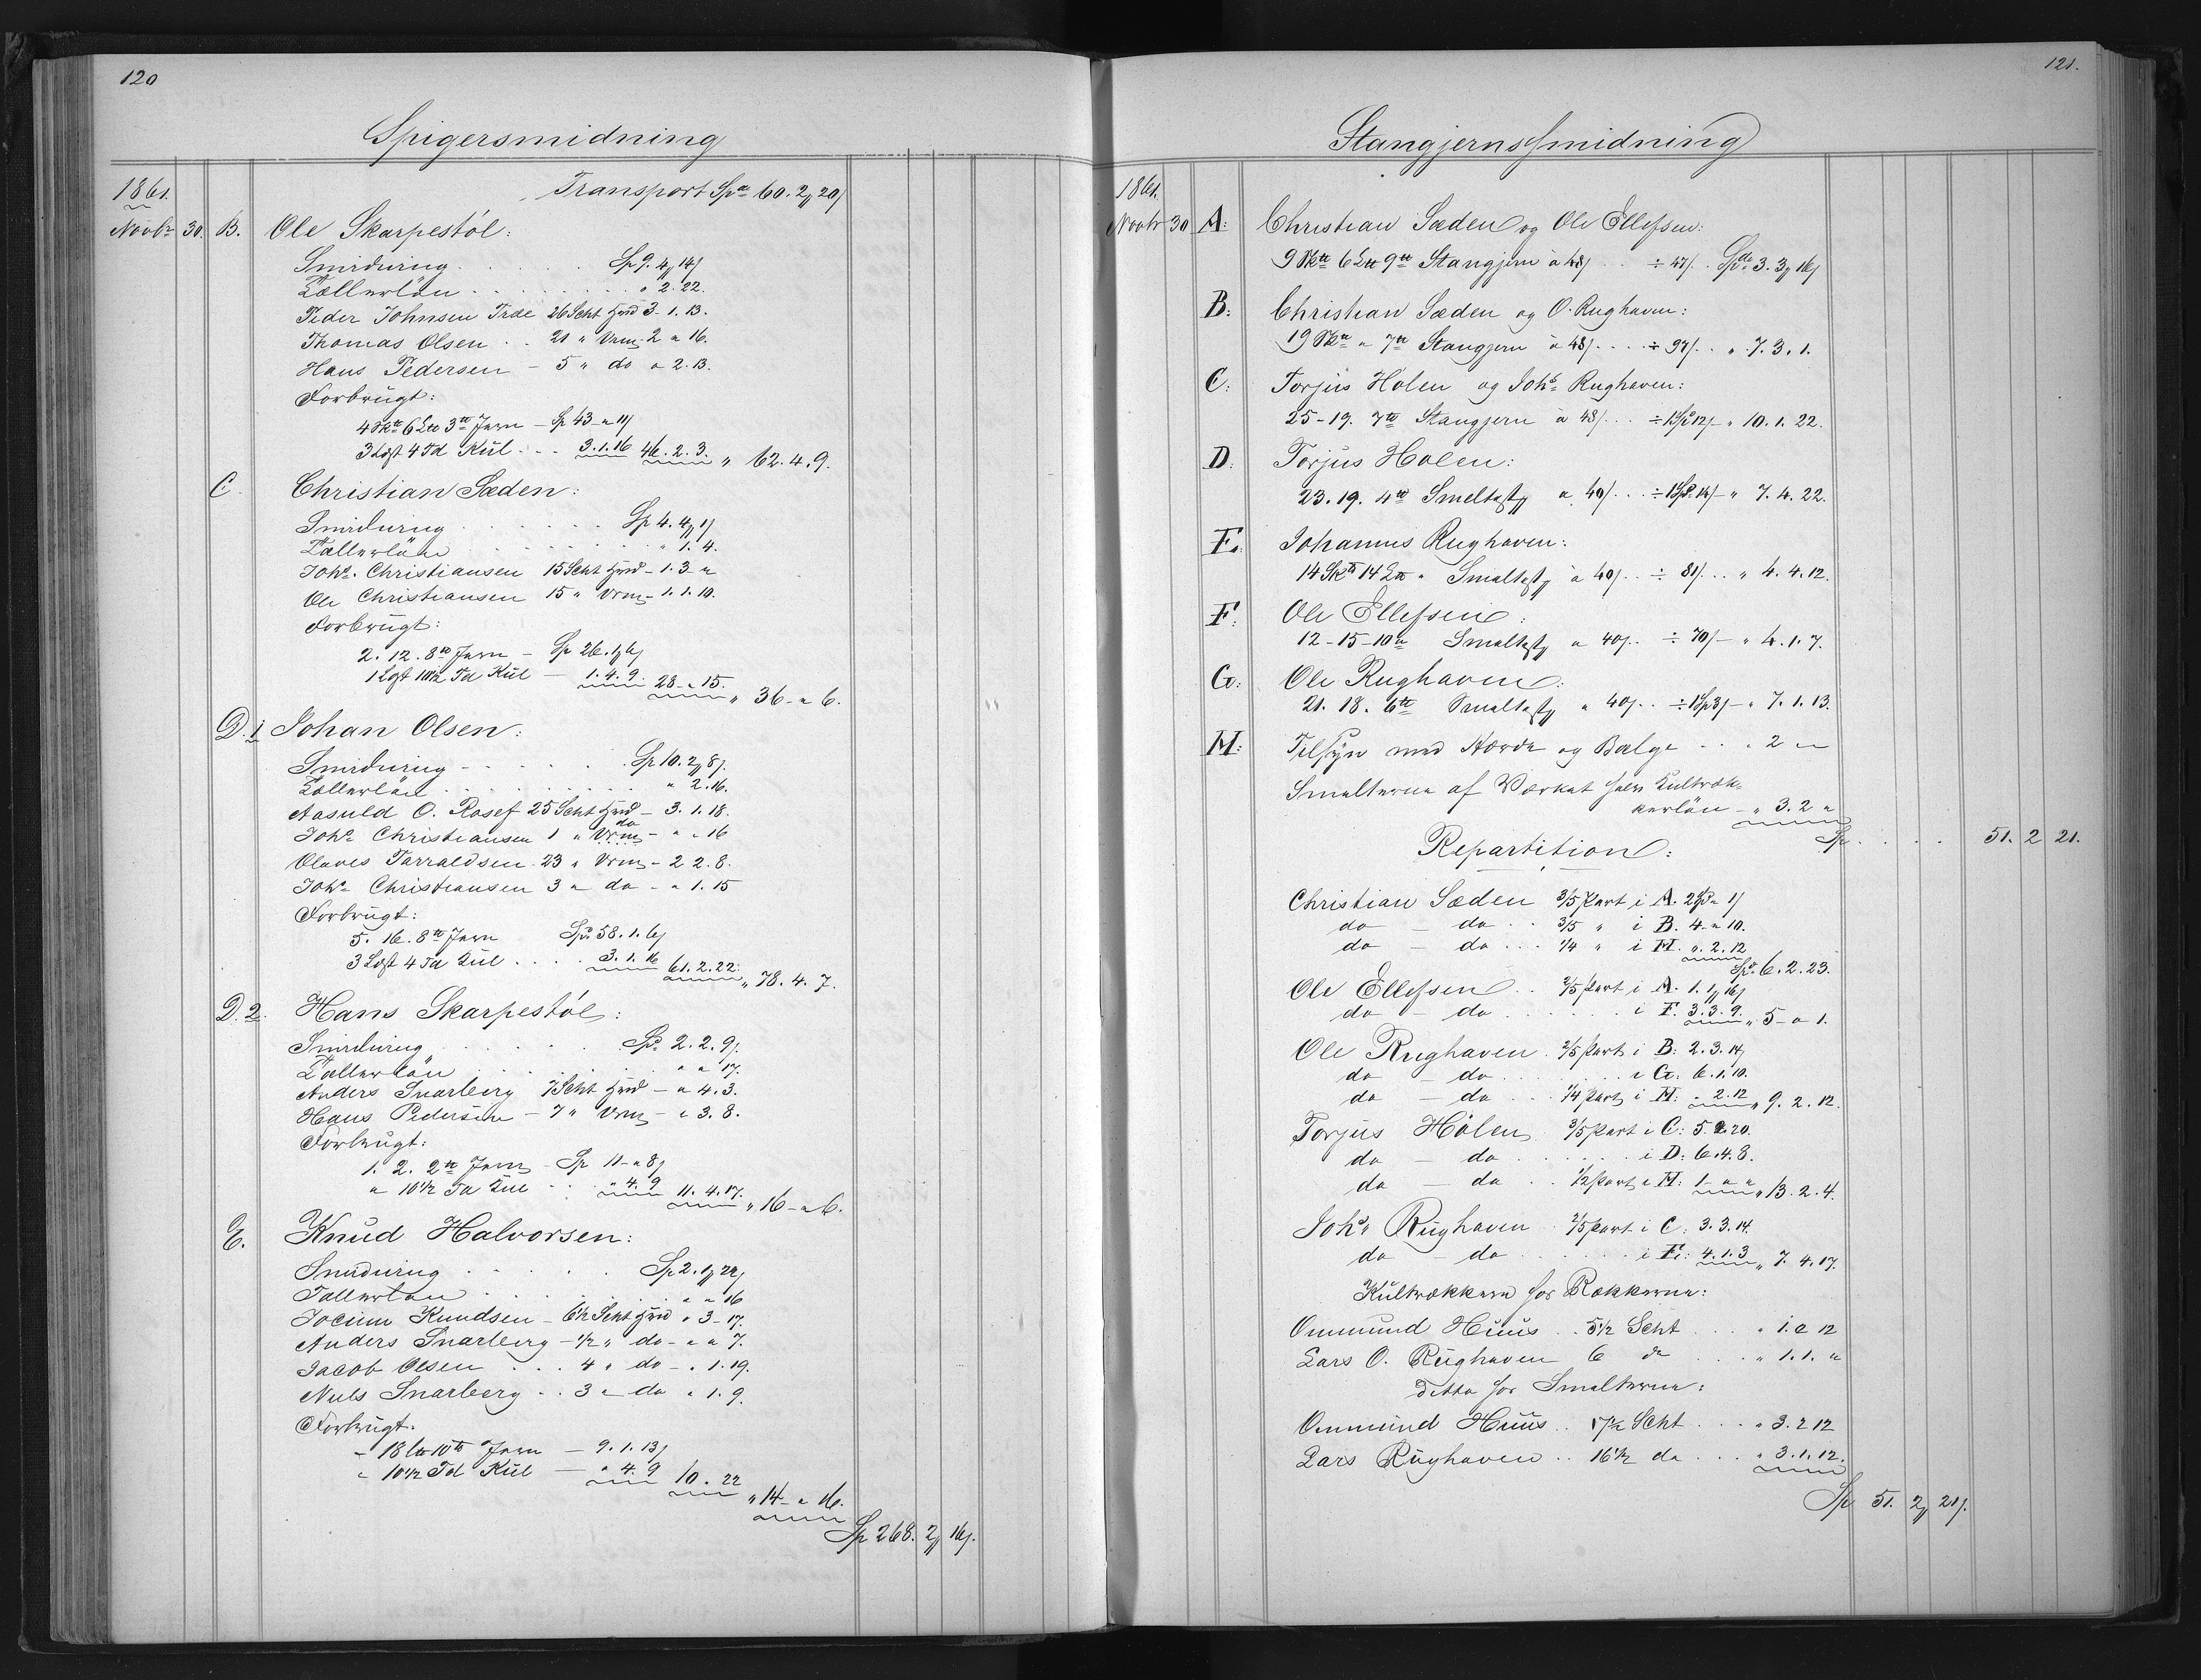 120
Spigersmidning
1861.
Transport Spd 60. 2 20
Novbr 30. B. Ole Skarpestöl:
Smidning . . . . . Sp 9. 4 14
Tællerlön . . . . . " 2. 22.
Peder Johnsen Træe 26 Scht Hrd 3. 1. 13.
Thomas Olsen . . 21 " Vrm - 2 " 16.
Hans Pedersen - 5 " do " 2. 13.
Forbrugt:
4 Sk℔ 6 L℔ 3 ℔ Jern - Sp 43 - " 11
3 Læst 4 Td Kul . . . 3. 1. 16 46. 2. 3. " 62. 4. 9.
C. Christian Sæden:
Smidning . . . . . Sp 4. 4 1
Tællerlön . . . . . " 1. 4.
Johs. Christiansen 15 Scht Hrd - 1. 3 - "
Ole Christiansen 15 " Vrm - 1. 1. 10.
Forbrugt:
2. 12. 8 ℔ Jern - Sp 26. 1 6
1 Læst 10½ Td Kul - 1. 4. 9 28 - " 15. " 36 - " 6.
D. 1 Johan Olsen:
Smidning - . . . . Sp 10. 2 8
Tællerlön . . . . . " 2. 16.
Aasuld O. Rosef 25 Scht Hrd - 3. 1. 18.
Johs Christiansen 1 " do Vrm - " " 16
Olaves Tarraldsen 23 " Vrm - 2 2. 8.
Johs Christiansen 3 " do - " 1. 15
Forbrugt:
5. 16. 8 ℔ Jern Spd 58. 1. 6
3 Læst 4 Td Kul . . . . 3. 1. 16 61. 2. 22. " 78. 4. 7.
D. 2. Hans Skarpestöl:
Smidning . . . . . Spd 2. 2. 9
Tællerlön . . . . . " " 17.
Anders Snarberg 7 Scht Hrd - " 4. 3.
Hans Pedersen - 7 " Vrm - " 3. 8.
Forbrugt:
1. 2. 2 ℔ Jern - Sp 11 - " 8
" 10½ Td Kul - . . " 4. 9 11. 4. 17. " 16 - " 6.
E. Knud Halvorsen:
Smidning . . . . . Sp 2. 1 22
Tællerlön . . . . . " " 16
Jocum Knudsen - 6½ Scht Hrd " 3 - 17.
Anders Snarberg - ½ " do - " " 7.
Jacob Olsen . . . 4 " do - " 1. 19.
Niels Snarberg . . 3 " do " 1. 9.
Forbrugt.
- 18 L℔ 10 ℔ Jern - 9. 1. 13
" 10½ Td Kul - " 4. 9 10. 22 " 14 - " 16.
Sp 268. 2 16
121.
Stangjernssmidning
1861.
Novbr 30 A: Christian Sæden og Ole Ellefsen:
9 Sk℔ 6 L℔ 9 ℔ Stangjern à 48 . . ÷ 47 . . Spd 3. 3 16
B: Christian Sæden og O. Rughaven:
19 Sk℔ " 7 ℔ Stangjern à 48 . . . ÷ 97 . . " 7. 3. 1.
C: Torjus Holen og Johs Rughaven:
25-19. 7 ℔ Stangjern à 48 . . . ÷ 1 Spd 12 - " 10. 1. 22.
D: Torjus Holen:
23. 19. 4 ℔ Smeltest à 40 . . . ÷ 1 Spd. 14 - " 7. 4. 22.
E: Johannes Rughaven:
14 Sk℔ 14 L℔ " Smeltest à 40 . . ÷ 81 . . . " 4. 4. 12.
F: Ole Ellefsen:
12-15-10 ℔ Smeltest à 40 . . ÷ 70 - " 4. 1. 7.
G: Ole Rughaven:
21. 18. 6 ℔ Smeltest à 40 . . ÷ 1 Sp 3 - " 7. 1. 13.
M: Tilsyn med Herde og Bælge . . . " 2 " -
Smelterne af Værket halv Kultræk-
kerlön - " 3. 2 "
Sp . . . . 51. 2 21.
Repartition:
Christian Sæden 3/5 Part i A. 2 Spd " 1
do - do . . 3/5 " i B. 4 - " 10.
do - do . . . ¼ " i M. " 2. 12
Spd 6. 2. 23.
Ole Ellefsen . . 2/5 Part i A. 1. 1 16
do - do . . . . . . i F. 3. 3. 9. " 5 - " 1.
Ole Rughaven . 2/5 Part i B: 2. 3. 14
do - do . . . . . . i G: 6. 1. 10.
do - do . . . ¼ Part i M: " 2. 12 " 9. 2. 12.
Torjus Hölen 3/5 Part i C: 5. 2. 20.
do - do . . . . . . i D: 6. 4. 8.
do - do . . ½ Part i M: 1 - " " " 13. 2. 4.
Johs Rughaven 2/5 Part i C. 3. 3. 14.
do - do . . . . . . i E: 4. 1. 3 " 7. 4. 17.
Kultrækkere for Rækkerne:
Ommund Huus . . 5½ Scht . . . " 1. " 12
Lars O. Rughaven 6 do . . . " 1. 1. "
Ditto for Smelterne:
Ommund Huus . . 17½ Scht . . . " 3. 2 12
Lars Rughaven . . 16½ do . . . " 3. 1. 12.
Sp 51. 2 21